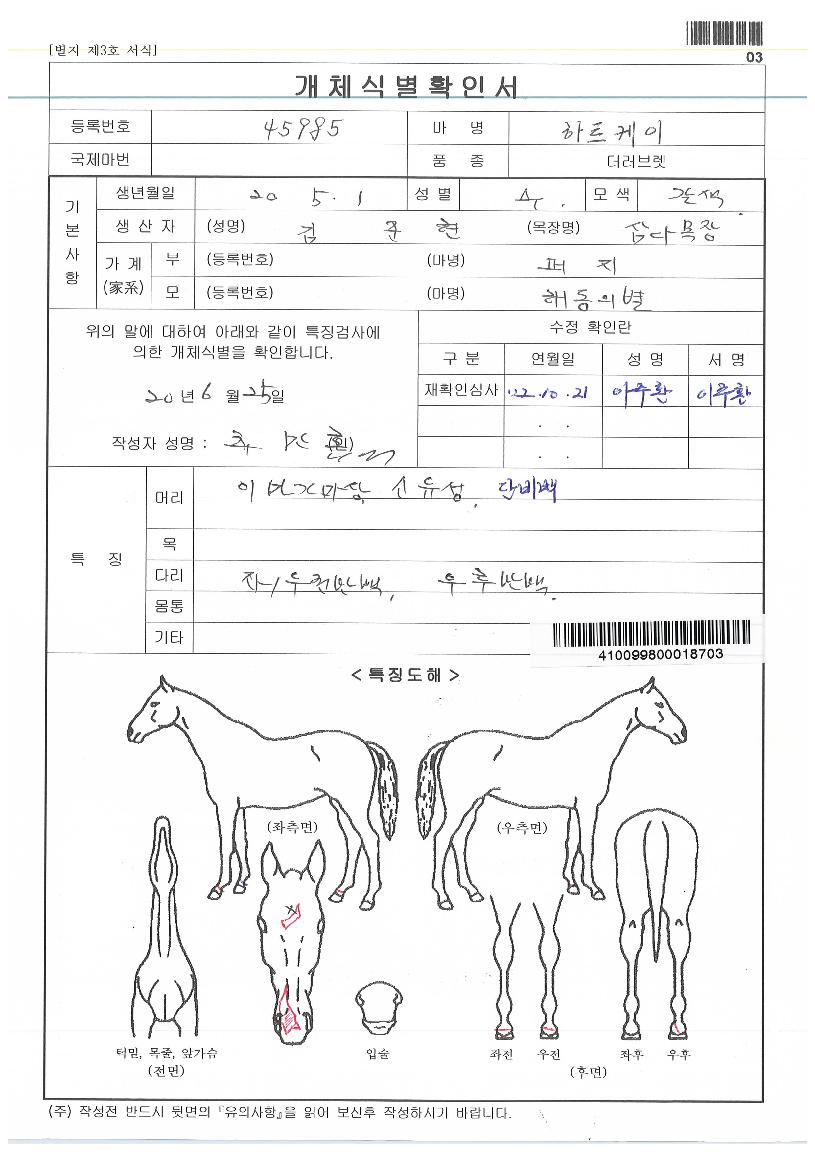 [별지 제3호 서식]
03
개체식별확인서
등록번호 45985 마 명 하트케이
국제마번 품 종 더러브렛
기본사항
생년월일 20 5. 1 성 별 수. 모 색 갈색.
생 산 자 (성명) 김 준 현 (목장명) 삼다목장
가 계 (家系) 부 (등록번호) (마명) 퍼 지
모 (등록번호) (마명) 해동의별
위의 말에 대하여 아래와 같이 특징검사에
의한 개체식별을 확인합니다.
20년 6 월 25일
작성자 성명 : (인)
수정 확인란
구 분 연월일 성 명 서 명
재확인심사 '22.10.21 이주환 이주환
. .
. .
특 징
머리 유성, 단비백
목
다리 좌/우전반백, 우후반백.
몸통
기타
410099800018703
< 특징도해 >
(좌측면) (우측면)
턱밑, 목줄, 앞가슴
(전면)
입술
좌전 우전 좌후 우후
(후면)
(주) 작성전 반드시 뒷면의 『유의사항』을 읽어 보신후 작성하시기 바랍니다.